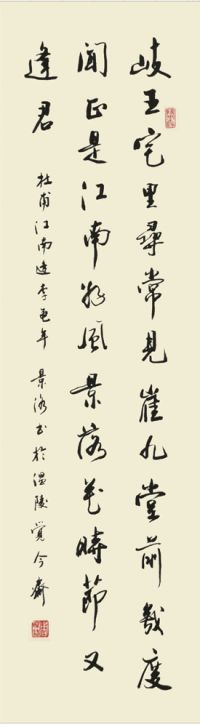 岐王宅里尋常見崔九堂前幾度
聞正是江南好風景落花時節又
逢君
杜甫江南逢李龟年 景洛书於温陵觉今斋